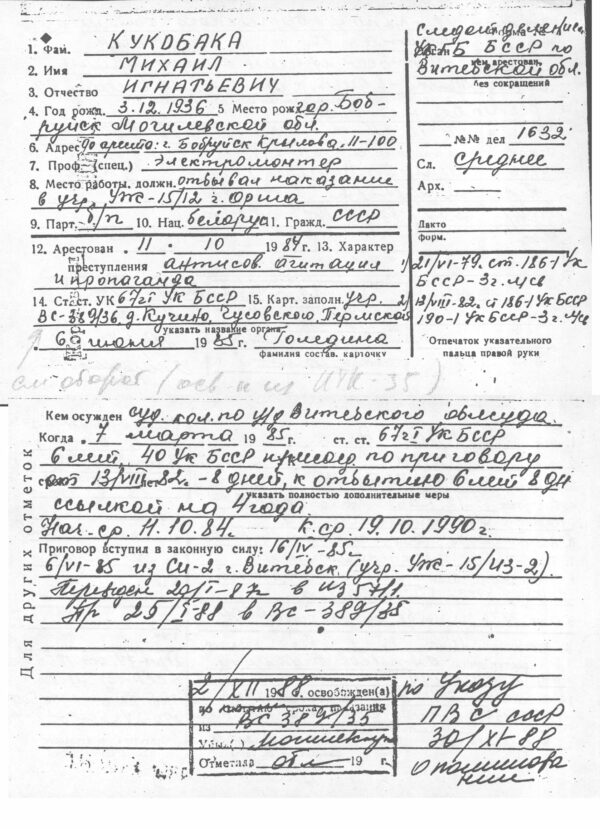 1. Фам. КУКОБАКА
2. Имя МИХАИЛ
3. Отчество ИГНАТЬЕВИЧ
4. Год рожд. 3.12.1936 5 Место рож. гор. Боб-
руйск Могилевской обл.
6. Адрес до ареста: г. Бобруйск Крылова, 11-100
7. Проф. (спец.) электромонтер
8. Место работы, должн. отбывал наказание
в учр. УЖ-15/12 г. Орша
9. Парт. б/п 10. Нац. белорус 11. Гражд. СССР
Следот
УКГБ БССР по
кем арестован
Витебской обл.
без сокращений
№№ дел 1632
Сл. среднее
Арх.
Дакто
форм.
12. Арестован 11 • 10 1984 г. 13. Характер
преступления антисов. агитация
и пропаганда
14. Ст. ст. УК 67 ч I УК БССР 15. Карт. заполн. учр.
ВС-389/36, д. Кучино, Чусовского, Пермской
указать название органа
6 июня 1985 г. Голедина
фамилия состав. карточку
1/ 21/VI-79. ст. 186-1 УК
БССР-3 г. л/св
2/ 13/VIII-82. ст 186-1 УК БССР
190-1 УК БССР-3 г. л/св
Отпечаток указательного
пальца правой руки
см оборот (осв из ИТК-35)
Для других отметок
Кем осужден суд. кол. по у/д Витебского облсуда
Когда 7 марта 1985 г. ст. ст. 67 ч I УК БССР
6 лет, 40 УК БССР по приговору
срок от 13/VIII-82. - 8 дней, к отбытию 6 лет 8 дн
указать полностью дополнительные меры
ссылкой на 4 года.
Нач. ср. 11.10.84. к. ср. 19.10.1990 г.
Приговор вступил в законную силу: 16/IV-85 г.
6/VI-85 из Си-2 г. Витебск (учр. УЖ-15/ИЗ-2).
Переведен 20/I-87г в ИЗ 57/1.
Пр 25/I-88 в ВС-389/35
2/XII 1988 освобожден(а)
по
из ВС 389/35
Убыл( )
Отметила 19 г.
по Указу
ПВС СССР
30/XI-88
О помилова
нии